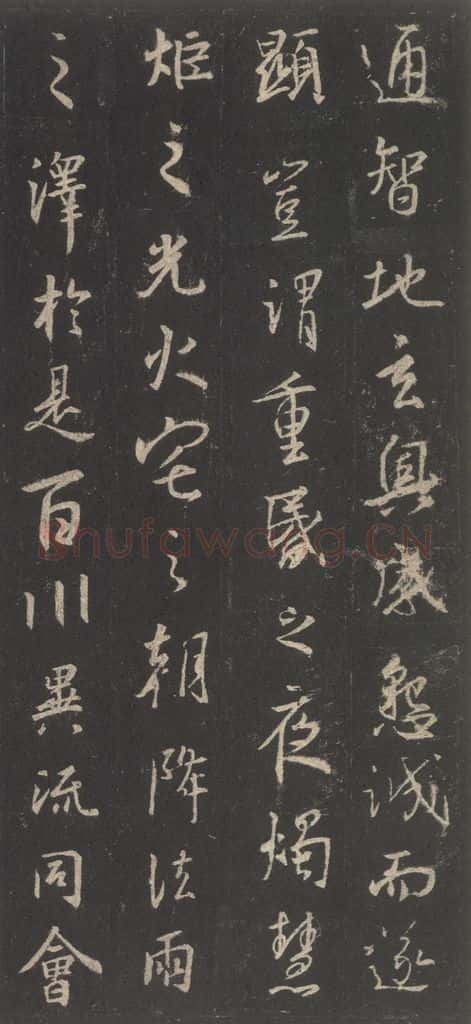 通智地玄奧感懇誠而遂
顯豈謂重昬之夜燭慧
炬之光火宅之朝降法雨
之澤於是百川異流同會
Shufawang.CN